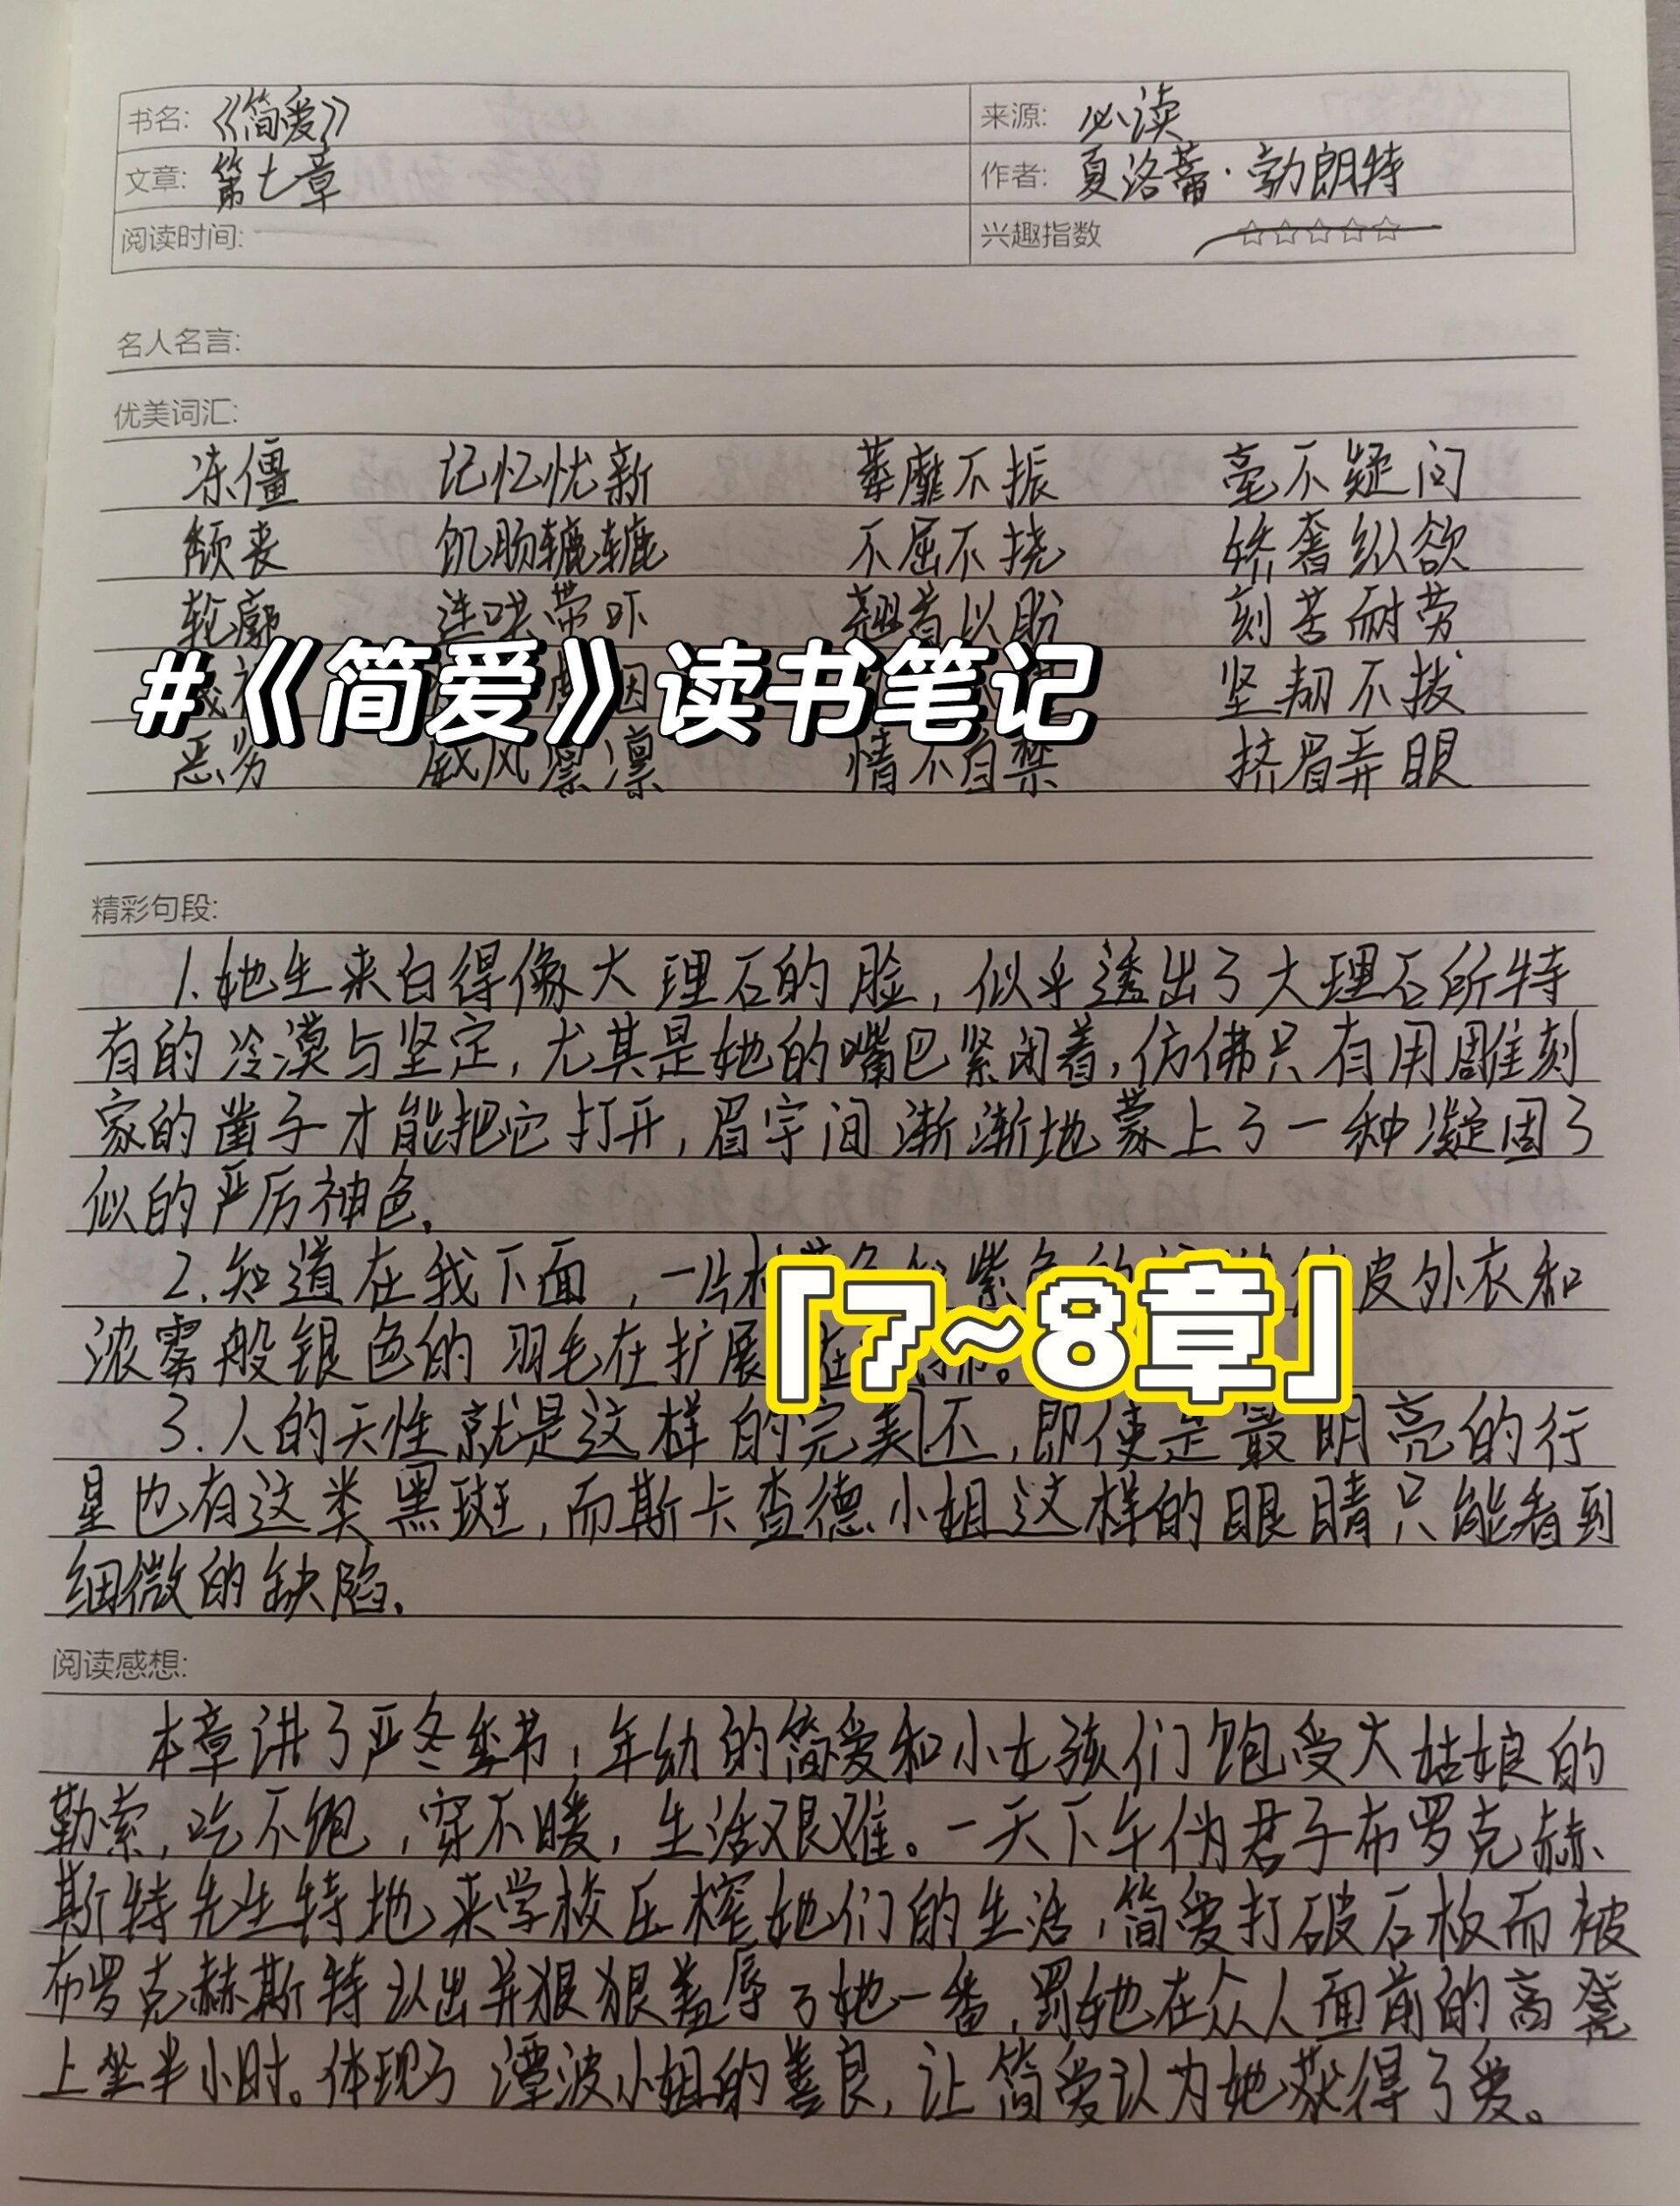 书名: 《简爱》 来源: 必读
文章: 第七章 作者: 夏洛蒂·勃朗特
阅读时间: 兴趣指数 ☆☆☆☆☆
名人名言:
优美词汇:
冻僵 记忆忧新 萎靡不振 毫不疑问
颓丧 饥肠辘辘 不屈不挠 骄奢纵欲
轮廓 连哄带吓 翘首以盼 刻苦耐劳
#《简爱》读书笔记
因 坚韧不拔
恶劣 威风凛凛 情不自禁 挤眉弄眼
精彩句段:
1.她生来白得像大理石的脸，似乎透出了大理石所特
有的冷漠与坚定，尤其是她的嘴巴紧闭着，仿佛只有用雕刻
家的凿子才能把它打开，眉宇间渐渐地蒙上了一种凝固了
似的严厉神色.
2.知道在我下面，一片 紫色的 皮外衣和
「7~8章」
浓雾般银色的羽毛在扩展
3.人的天性就是这样的完美不，即使是最明亮的行
星也有这类黑斑，而斯卡查德小姐这样的眼睛只能看到
细微的缺陷.
阅读感想:
本章讲了严冬季节，年幼的简爱和小女孩们饱受大姑娘的
勒索，吃不饱，穿不暖，生活艰难。一天下午伪君子布罗克赫
斯特先生特地来学校压榨她们的生活，简爱打破石板而被
布罗克赫斯特认出并狠狠羞辱了她一番，罚她在众人面前的高凳
上坐半小时。体现了潭波小姐的善良，让简爱认为她获得了爱。